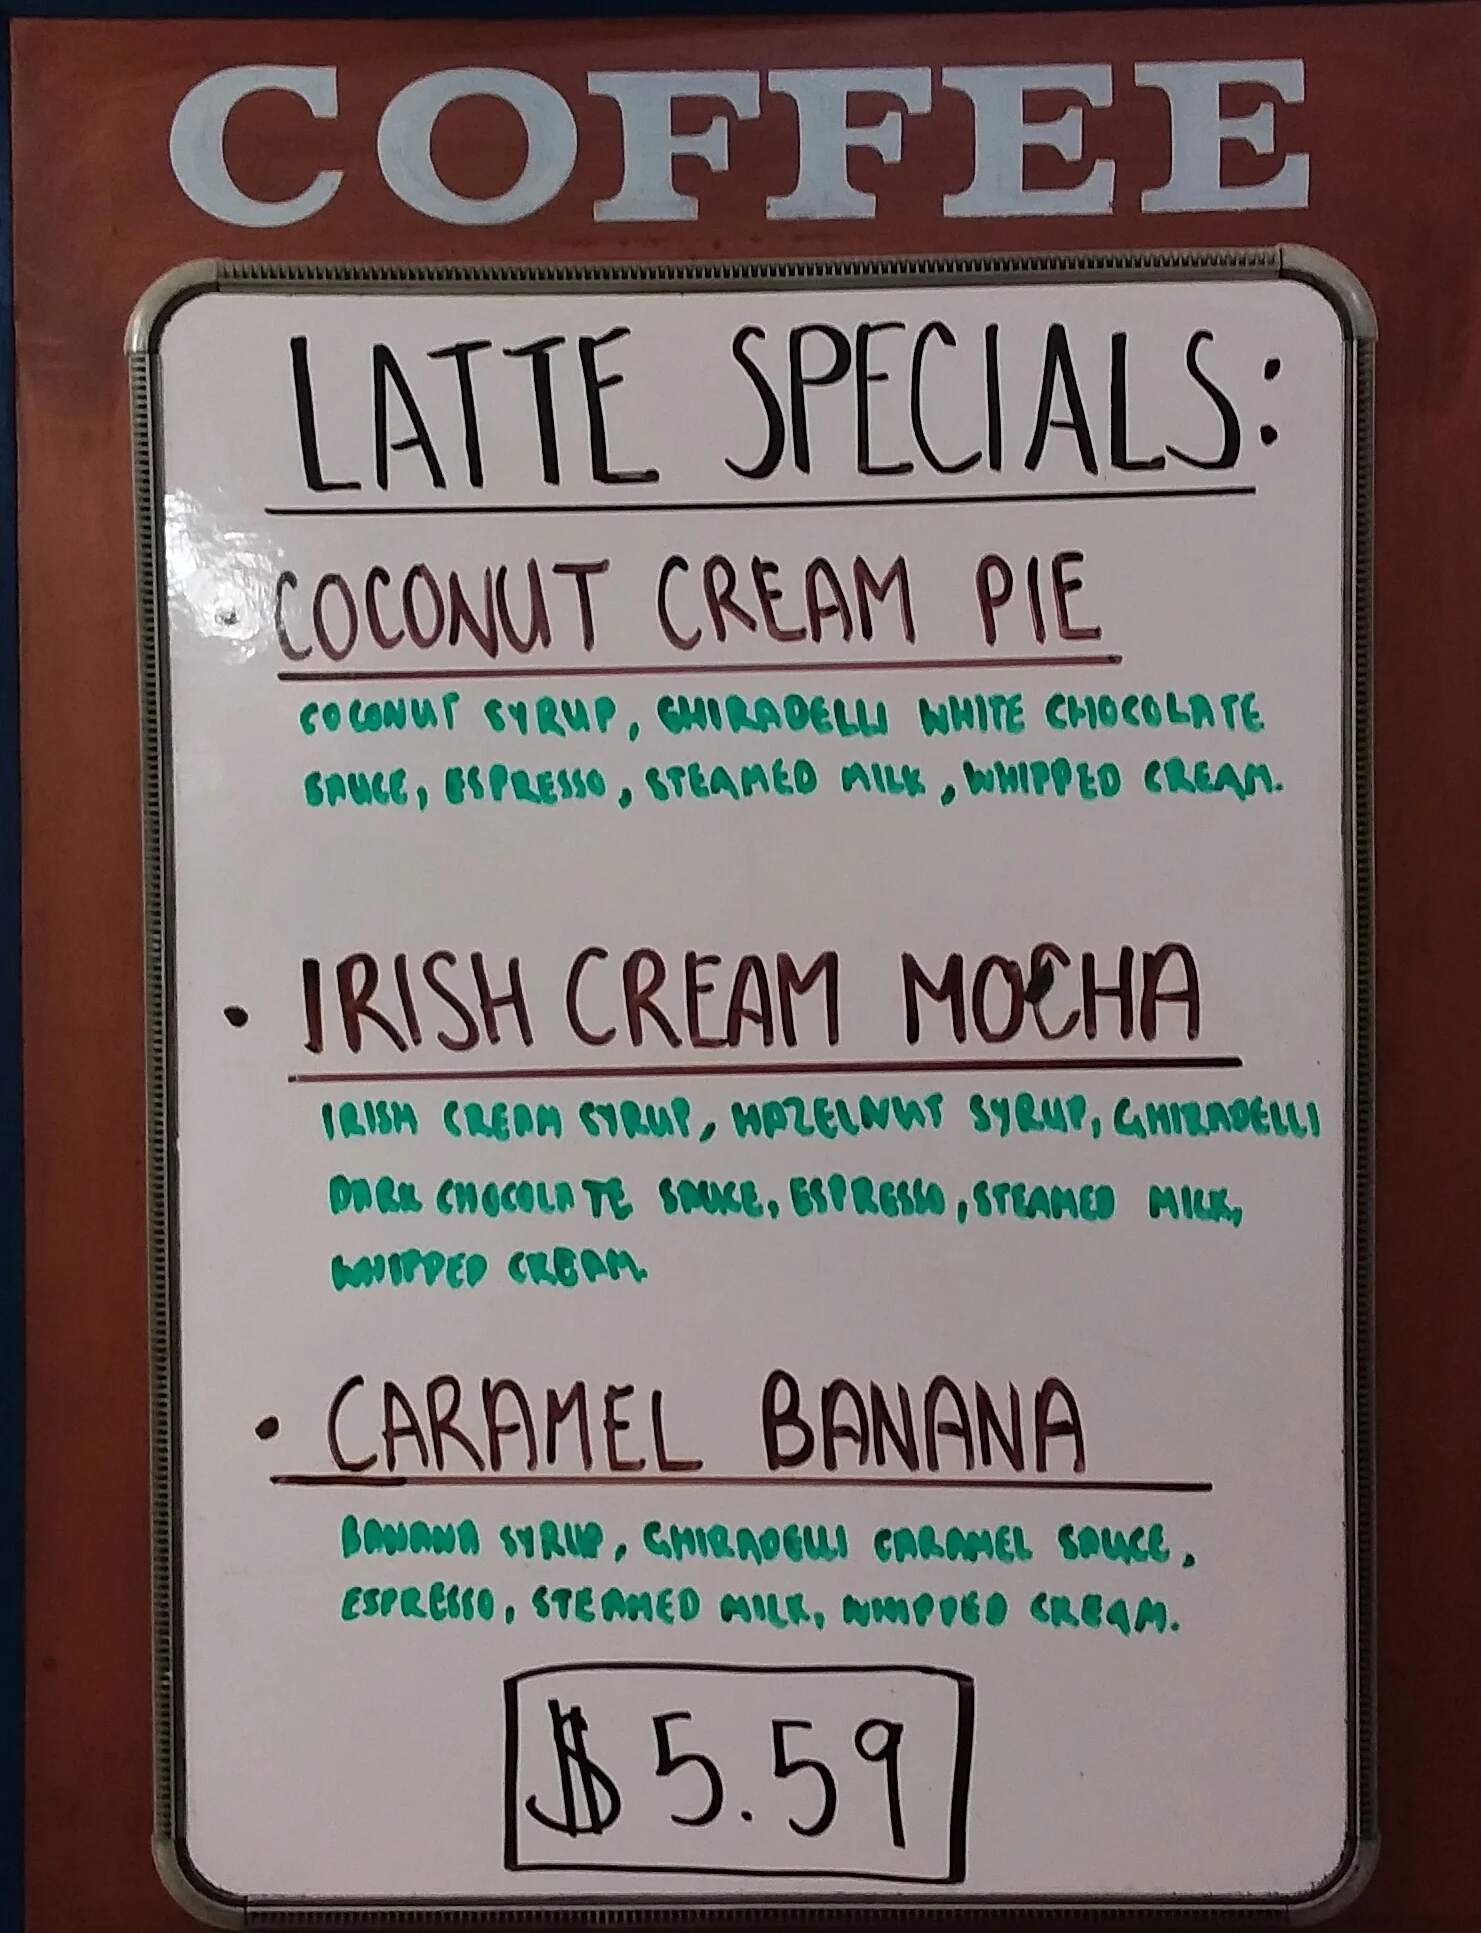 COFFEE
LATTE SPECIALS:
• COCONUT CREAM PIE
COCONUT SYRUP, GHIRADELLI WHITE CHOCOLATE
SAUCE, ESPRESSO, STEAMED MILK, WHIPPED CREAM.
• IRISH CREAM MOCHA
IRISH CREAM SYRUP, HAZELNUT SYRUP, GHIRADELLI
DARK CHOCOLATE SAUCE, ESPRESSO, STEAMED MILK,
WHIPPED CREAM.
• CARAMEL BANANA
BANANA SYRUP, GHIRADELLI CARAMEL SAUCE,
ESPRESSO, STEAMED MILK, WHIPPED CREAM.
$5.59